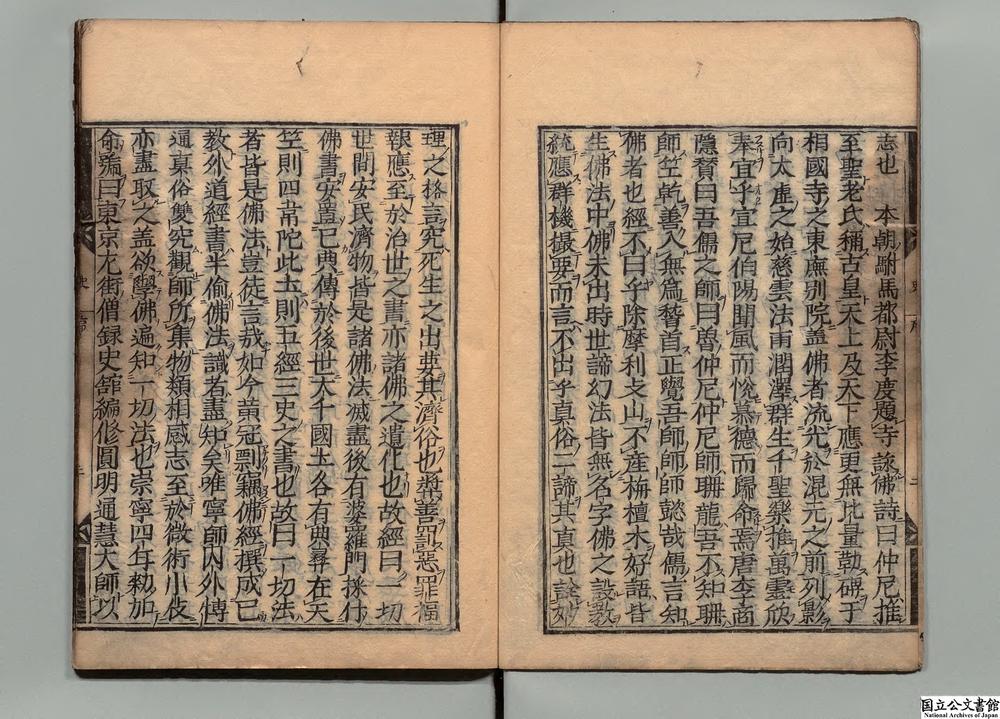 志也　本朝駙馬都尉李度題寺詠佛詩曰仲尼推
至聖老氏稱古皇天上及天下應更無比量勒碑于
相國寺之東廡別院盖佛者流光於混元之前列影
向太虛之始慈雲法雨潤澤群生千聖樂推萬靈欣
奉宜乎宣尼伯陽聞風而悅慕德而歸命焉唐李商
隱賛曰吾儒之師曰魯仲尼仲尼師聃龍吾不知聃
師竺乾善入無爲稽首正覺吾師師師懿哉儒言知
佛者也經不曰乎除摩利支山不産栴檀木好語皆
生佛法中佛未出時世諦幻法皆無名字佛之設教
統應群機撮要而言不出乎真俗二諦其真也詮妙
理之格言究死生之出要其濟俗也舉善罰惡罪福
報應至於治世之書亦諸佛之遺化也故經曰一切
世間安民濟物皆是諸佛法滅盡後有婆羅門採付
佛書安置己典傳於後世大千國土各有典彛在天
竺則四韋陀此土則五經三史之書也故曰一切法
者皆是佛法豈徒言哉如今黄冠剽竊佛經撰成己
教外道經書半偷佛法識者盡知矣唯寧師内外博
通真俗雙究觀師所集物類相感志至於微術小伎
亦盡取之盖欲學佛遍知一切法也崇寧四年勑加
命號曰東京左街僧録史舘編修圓明通慧大師以
国立公文書館
National Archives of Japan